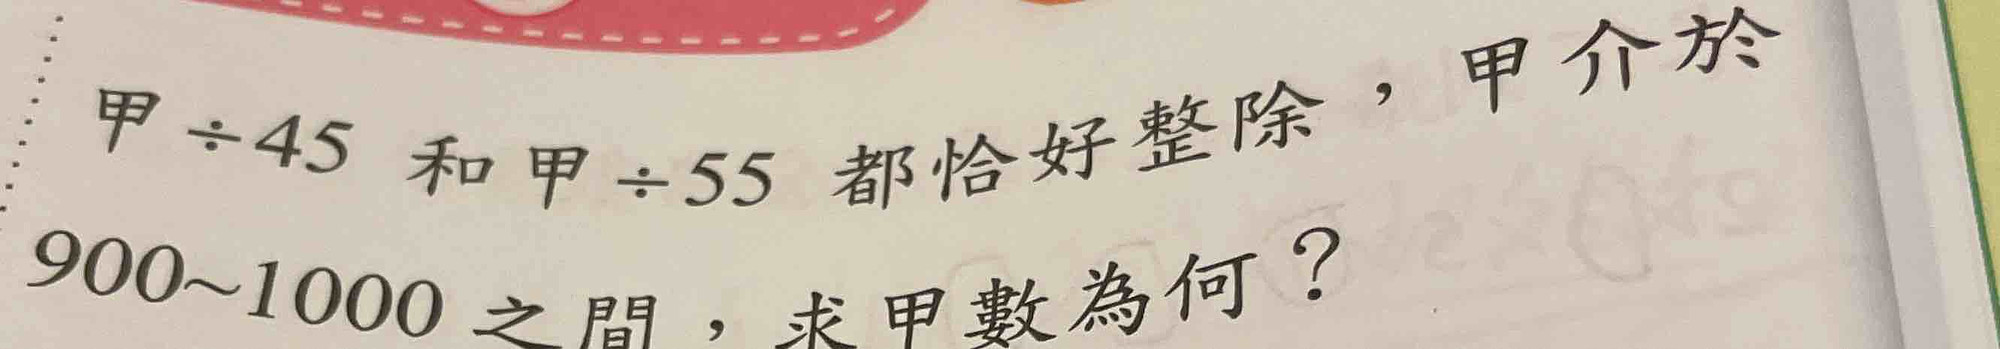 甲÷45 和甲÷55 都恰好整除，甲介於
900~1000之間，求甲數為何？